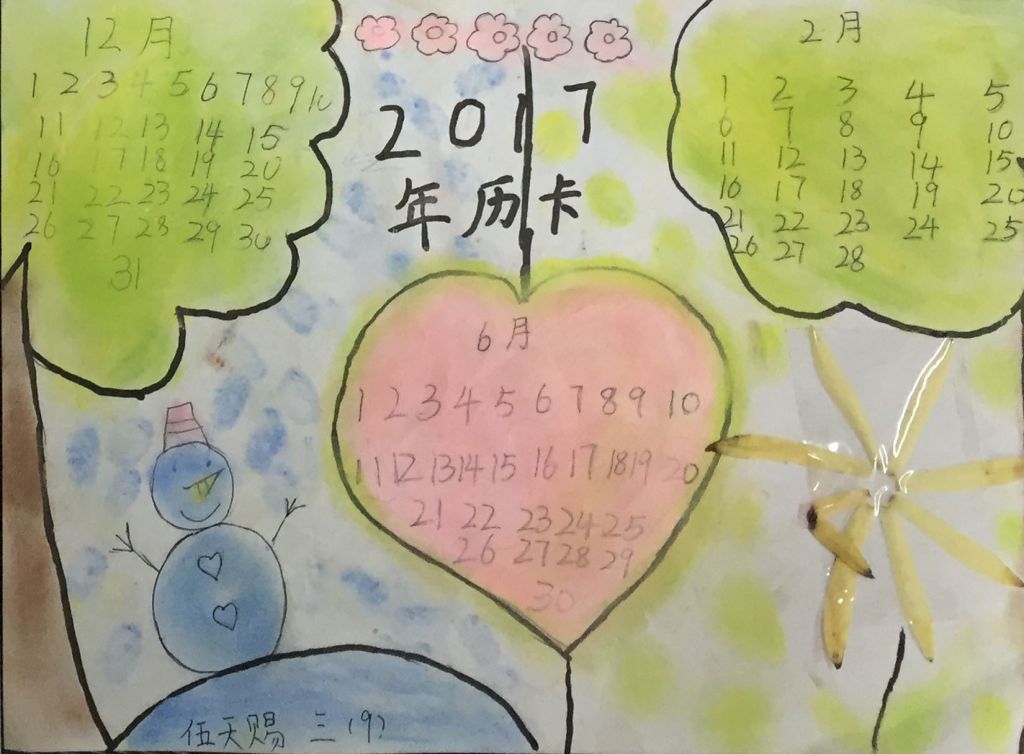 12月
1 2 3 4 5 6 7 8 9 10
11 12 13 14 15
16 17 18 19 20
21 22 23 24 25
26 27 28 29 30
31
2017
年历卡
2月
1 2 3 4 5
6 7 8 9 10
11 12 13 14 15
16 17 18 19 20
21 22 23 24 25
26 27 28
6月
1 2 3 4 5 6 7 8 9 10
11 12 13 14 15 16 17 18 19 20
21 22 23 24 25
26 27 28 29
30
伍天赐 三(9)